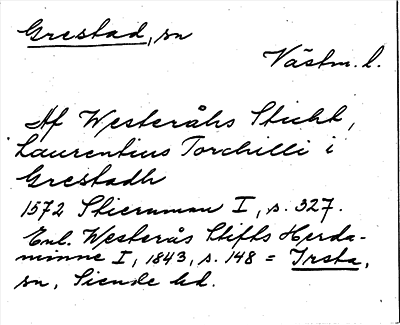 Grestad, sn
Västm. l.
Af Westeråhs Sticht,
Laurentius Torchilli i
Grestadh
1572 Stiernman I, s. 327.
Enl. Westerås Stifts Herda-
minne I, 1843, s. 148 = Irsta,
sn, Siende hd.